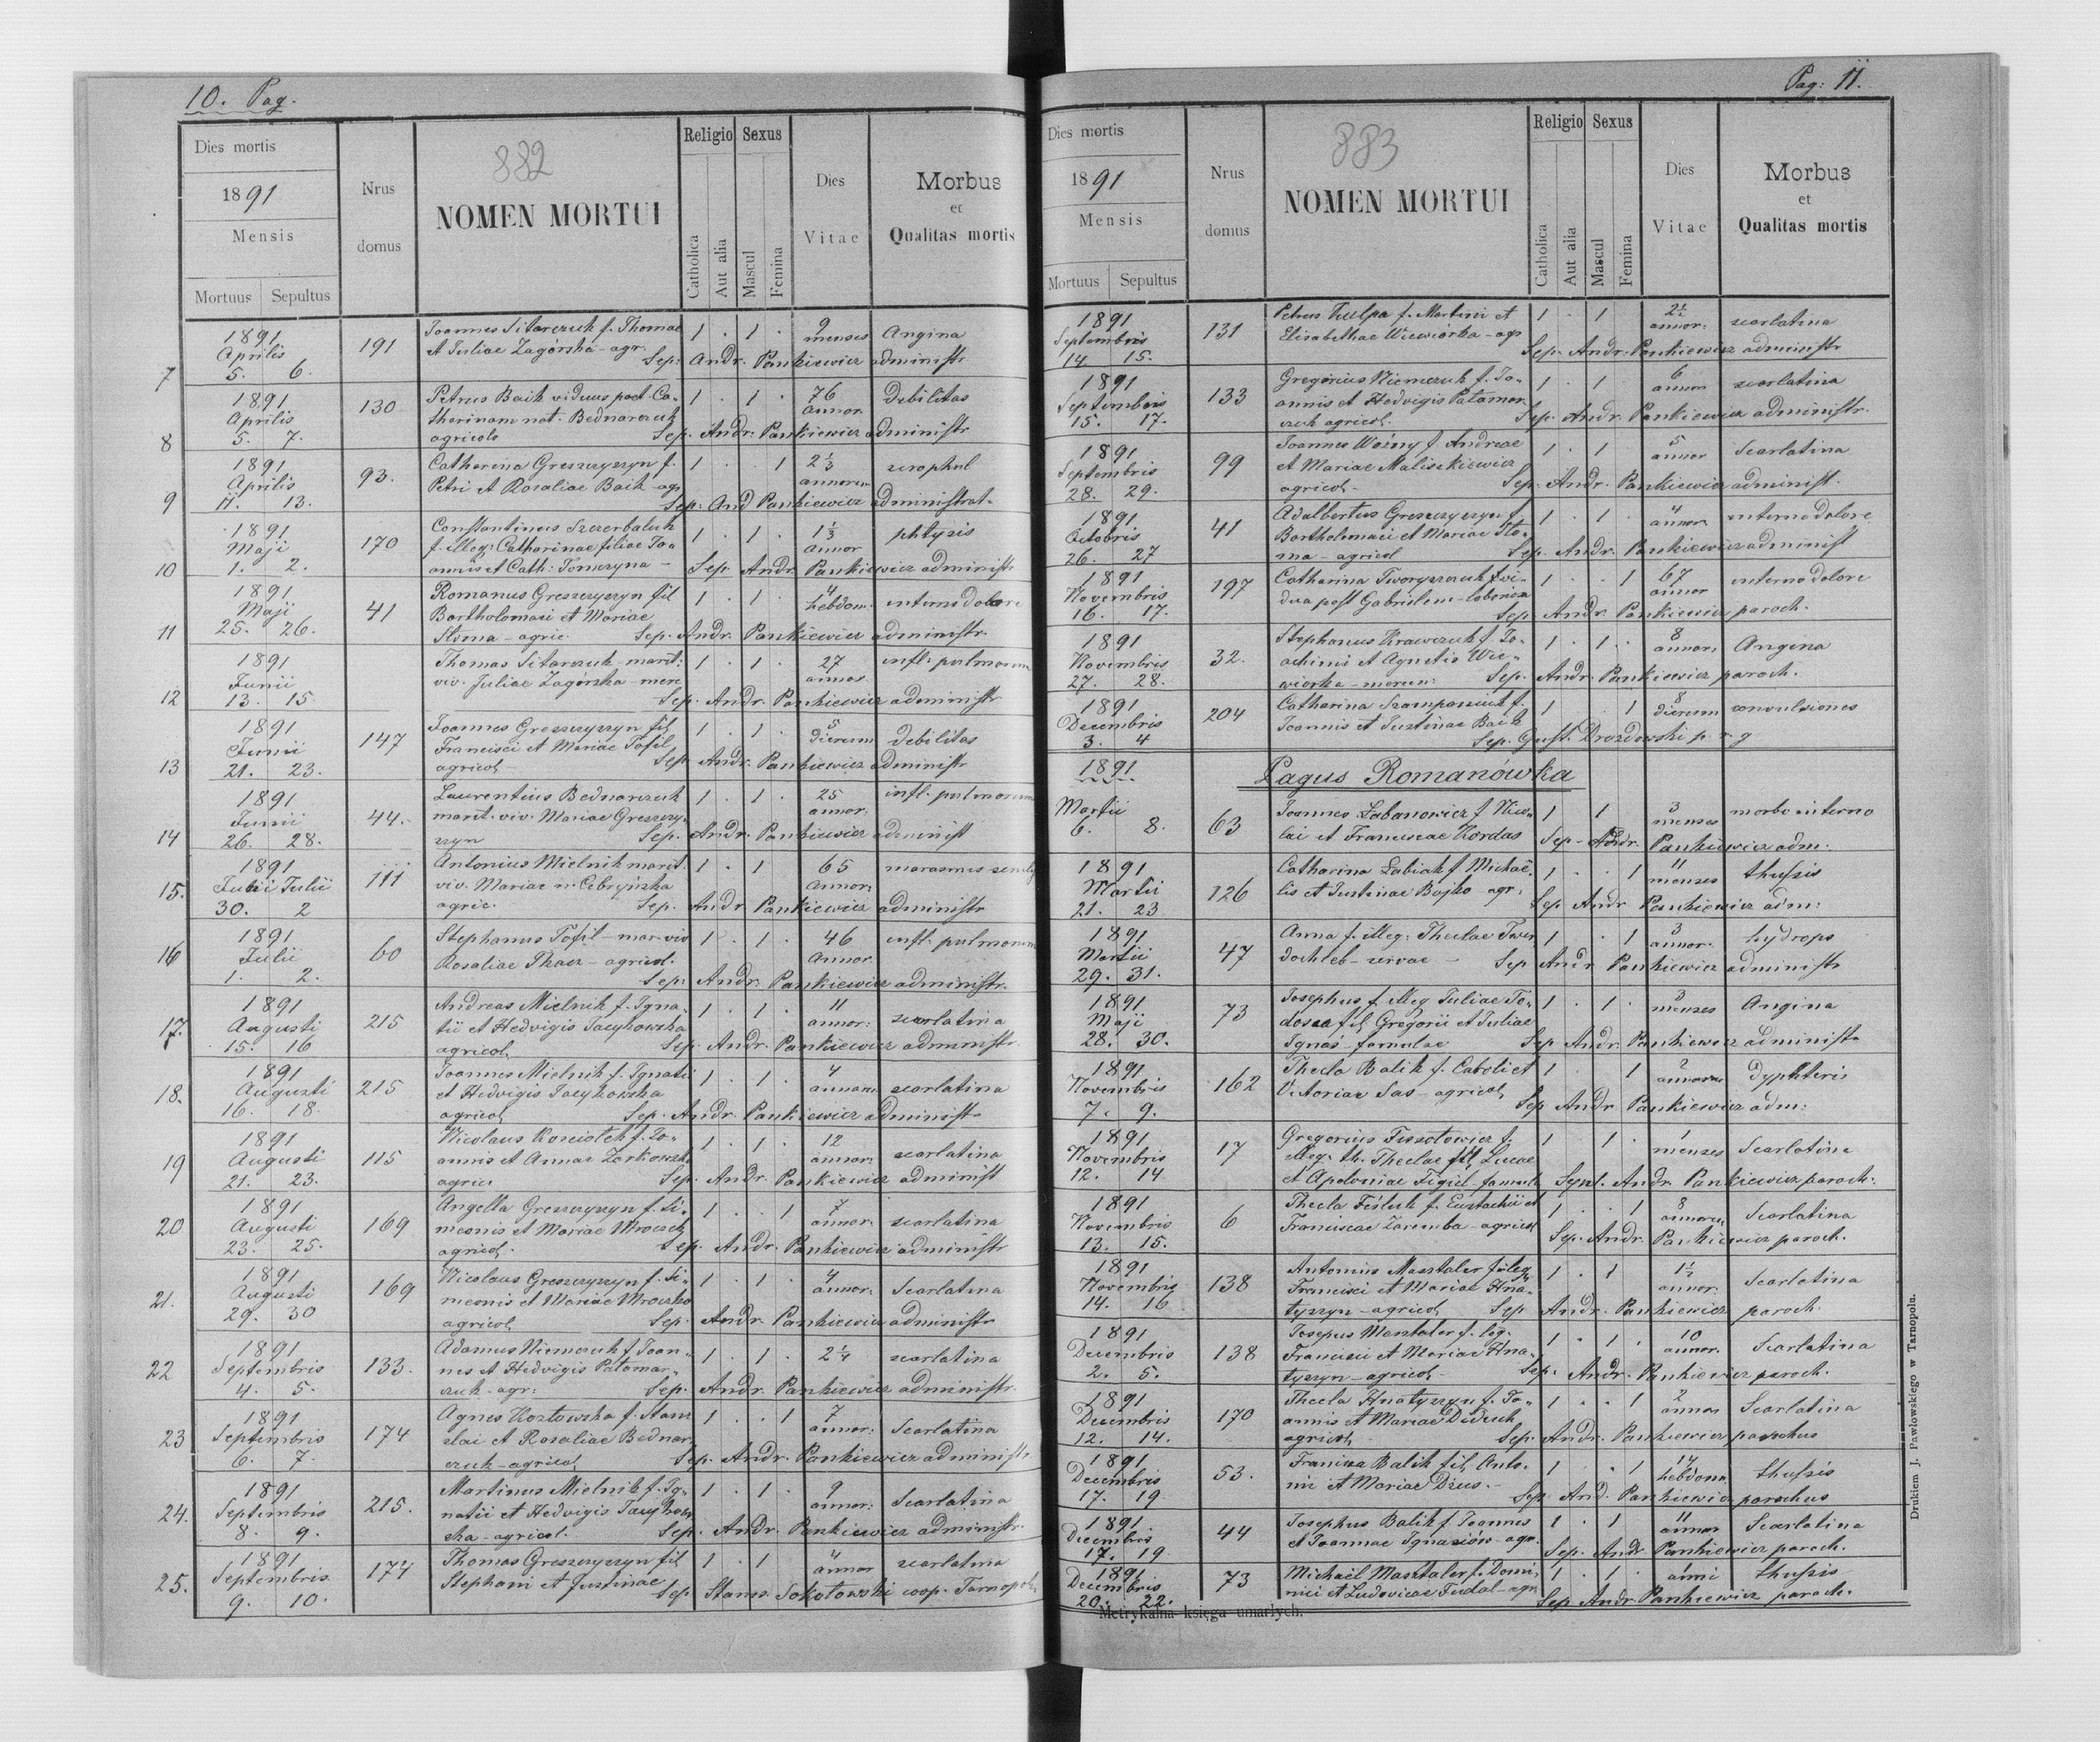 10. Pag.
Dies mortis
1891
Mensis
Mortuus Sepultus
Nrus domus
882
NOMEN MORTUI
Religio Sexus
Catholica
Aut alia
Mascul
Femina
Dies Vitae
Morbus
et
Qualitas mortis
7
1891 Aprilis 5. 6.
191
Joannes Sitarczuk f. Thomae
et Juliae Zagórska - agr.
1 . 1 .
9 menses
Angina
Sep: Andr. Pankiewicz administr
8
1891 Aprilis 5. 7.
130
Petrus Baik viduus post Ca-
tharinam nat. Bednarczuk
agricola
1 . 1 .
76 annor.
Debilitas
Sep. Andr: Pankiewicz administr
9
1891 Aprilis 11. 13.
93.
Catharina Greszczyszyn f.
Petri et Rosaliae Baik - agr
1 . . 1
2 1/3 annorum
scrophul
Sep: And Pankiewicz administrat.
10
1891 Maji 1. 2.
170
Constantinus Szczerbaluk
f. illeg: Catharinae filiae Jo-
annis et Cath:
1 . 1 .
1 1/3 annor
phtysis
Sep. Andr. Pankiewicz administr
11
1891 Maji 25. 26.
41
Romanus Greszczyszyn fil
Bartholomaei et Mariae
Słoma - agric.
1 . 1 .
4 hebdom.
interno dolore
Sep. Andr. Pankiewicz administr.
12
1891 Junii 13. 15.
Thomas Sitarczuk - marit:
viv. Juliae Zagórska - merc
1 . 1 .
27 annos
infl. pulmonum
Sep. Andr. Pankiewicz administr
13
1891 Junii 21. 23.
147
Joannes Greszczyszyn fil,
Francisci et Mariae Tofil
agricol.
1 . 1 .
5 dierum
Debilitas
Sep. Andr. Pankiewicz administr
14
1891 Junii 26. 28.
44.
Laurentius Bednarczuk
marit. viv. Mariae Greszczy-
szyn
1 . 1 .
25 annor.
infl. pulmonum
Sep. Andr. Pankiewicz administ
15.
1891 Junii Julii 30. 2
111
Antonius Mielnik marit.
viv. Mariae
agric.
1 . 1
65 annor:
marasmus senilis
Sep. Andr Pankiewicz administr
16
1891 Julii 1. 2.
60
Stephanus Tofil - mar. viv
Rosaliae Tkacz - agricol.
1 . 1 .
46 Annor.
infl. pulmonum
Sep: Andr. Pankiewicz administr.
17.
1891 Augusti 15. 16
215
Andreas Mielnik f. Igna-
tii et Hedvigis Jacykowska
agricol,
1 . 1 .
11 annor:
scarlatina
Sep. Andr. Pankiewicz administr.
18.
1891 Augusti 16. 18.
215
Joannes Mielnik f. Ignatii
et Hedvigis Jacykowska
agricol,
1 . 1 .
4 annorum
scarlatina
Sep. Andr. Pankiewicz administr
19
1891 Augusti 21. 23.
115
Nicolaus Kosciołek f. Jo-
annis et Annae
agric
1 . 1 .
12 annor.
scarlatina
Sep. Andr. Pankiewicz administ
20
1891 Augusti 23. 25.
169
Angella Greszczyszyn f. Si-
meonis et Mariae
agricol.
1 . . 1
7 annor.
scarlatina
Sep. Andr. Pankiewicz administr
21.
1891 Augusti 29. 30
169
Nicolaus Greszczyszyn f. Si-
meonis et Mariae Mroczko
agricol,
1 . 1 .
4 annor:
Scarlatina
Sep. Andr. Pankiewicz administr
22
1891 Septembris 4. 5.
133.
Adamus Niemczuk f. Joan-
nis et Hedvigis Patamar-
czuk - agr:
1 . 1 .
2 1/4
scarlatina
Sep. Andr. Pankiewicz administr.
23
1891 Septembris 6. 7.
174
Agnes Kozłowska f. Stanis
slai et Rosaliae Bednar
czuk - agricol,
1 . . 1
7 annor:
Scarlatina
Sep. Andr. Pankiewicz administr
24.
1891 Septembris 8. 9.
215.
Martinus Mielnik f. Ig-
natii et Hedvigis Jacykow
ska - agricol.
1 . 1 .
9 annor:
Scarlatina
Sep. Andr. Pankiewicz administr.
25.
1891 Septembris 9. 10.
174
Thomas Greszczyszyn fil,
Stephani et Justinae
1 . 1
4 annor
scarlatina
Sep. Stanis. Sokołowski coop. Tarnopol.
Pag: 11.
Dies mortis
1891
Mensis
Mortuus Sepultus
Nrus domus
883
NOMEN MORTUI
Religio Sexus
Catholica
Aut alia
Mascul
Femina
Dies Vitae
Morbus
et
Qualitas mortis
1891 Septembris 14. 15.
131
Petrus Kulpa f. Martini et
Elisabethae Wiewiórka - agr
1 . 1
2 1/2 annor:
scarlatina
Sep. Andr. Pankiewicz administr
1891 Septembris 15. 17.
133
Gregorius Niemczuk f. Jo-
annis et Hedvigis Patamar
czuk agricol.
1 . 1
6 annor
scarlatina
Sep. Andr. Pankiewicz administr.
1891 Septembris 28. 29.
99
Joannes Woźny f. Andreae
et Mariae Maliszkiewicz
agricol.
1 . 1
5 annor
Scarlatina
Sep. Andr. Pankiewicz administ.
1891 Octobris 26. 27
41
Adalbertus Greszczyszyn f.
Bartholomaei et Mariae Sło-
ma - agricol
1 . 1 .
4 annor
interno dolore
Sep. Andr. Pankiewicz administ
1891 Novembris 16. 17.
197
Catharina Tworyszczuk f vi-
dua post Gabrielem - laborioza
1 . . 1
67 annor
interno dolore
Sep Andr. Pankiewicz paroch.
1891 Novembris 27. 28.
32.
Stephanus Krawczuk f. Jo-
achimis et Agnetis Wie-
wiorka - mercen:
1 . 1 .
8 annor.
Angina
Sep. Andr. Pankiewicz paroch.
1891 Decembris 3. 4
204
Catharina f.
Joannis et Justinae Baik
1 . 1
8 dierum
convulsiones
Sep. Gust. Drozdowski p. r. g
1891
Pagus Romanówka
Martii 6. 8.
63
Joannes Łabanowicz f Nico-
lai et Franciscae Kordas
1 1
3 menses
morbo interno
Sep - Andr. Pankiewicz adm:
1891 Martii 21. 23
126
Catharina Łabiak f Michaë-
lis et Justinae Bojko agr.
1 . . 1
11 menses
thussis
Sep Andr Pankiewicz adm:
1891 Martii 29. 31.
47
Anna f. illeg: Theclae Twer
dochleb - servae -
1 . 1
3 annor.
hydrops
Sep Andr Pankiewicz administr
1891 Maji 28. 30.
73
Josephus f. illeg Juliae
fil, Gregorii et Juliae
Ignaś - famulae
1 . 1 .
3 menses
Angina
Sep Andr. Pankiewicz administr
1891 Novembris 7. 9.
162
Thecla Balik f. Caroli et
Victoriae Sas - agricol,
1 1
2 annorum
Dyphteris
Sep Andr Pankiewicz adm:
1891 Novembris 12. 14
17
Gregorius f.
illeg. th. Theclae fil, Lucae
et Apoloniae Figiel - famula
1 1 .
1 menses
Scarlatina
Sepul. Andr. Pankiewicz paroch.
1891 Novembris 13. 15.
6
Thecla f. Eustachii et
Franciscae Zaremba - agricol
1 . . 1
8 annorum
Scarlatina
Sep. Andr. Pankiewicz paroch.
1891 Novembris 14. 16
138
Antonius Masztaler f. leg.
Francisci et Mariae Hna-
tyszyn - agricol,
1 . 1
1 1/2 annor.
Scarlatina
Sep Andr. Pankiewicz paroch.
1891 Decembris 2. 5.
138
Josepus Masztaler f. leg.
Francisci et Mariae Hna-
tyszyn - agricol.
1 . 1 .
10 annor.
Scarlatina
Sep. Andr. Pankiewicz paroch.
1891 Decembris 12. 14.
170
Thecla Hnatyszyn f. Jo-
annis et Mariae Diduch
agricol,
1 . . 1
2 annor
Scarlatina
Sep. Andr. Pankiewicz parochus
1891 Decembris 17. 19
53.
Franisza Balik fil, Anto-
nii et Mariae Dzus. -
1 . 1
14 hebdom.
thussis
Sep. And. Pankiewicz parochus
1891 Decembris 17. 19
44
Josephus Balik f. Joannis
et Joannae Ignasiów - agr.
1 . 1
11 annor
Scarlatina
Sep. Andr Pankiewicz paroch.
1891 Decembris 20. 22.
73
Michaël Masztaler f. Domi-
nici et Ludovicae Fudal - agr.
1 . 1 .
1 anni
thussis
Sep Andr Pankiewicz paroch.
Metrykalna księga umarłych.
Drukiem J. Pawlowskiego w Tarnopolu.